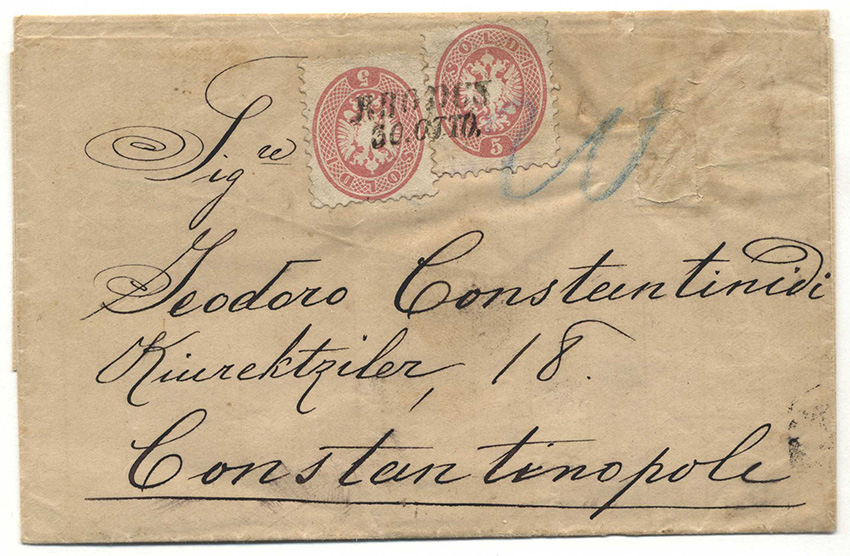 5 SOLDI
SOLDI 5
RHODUS
30. OTTO.
10
Sig.re
Teodoro Constantinidi
Kiurektziler, 18.
Constantinopole